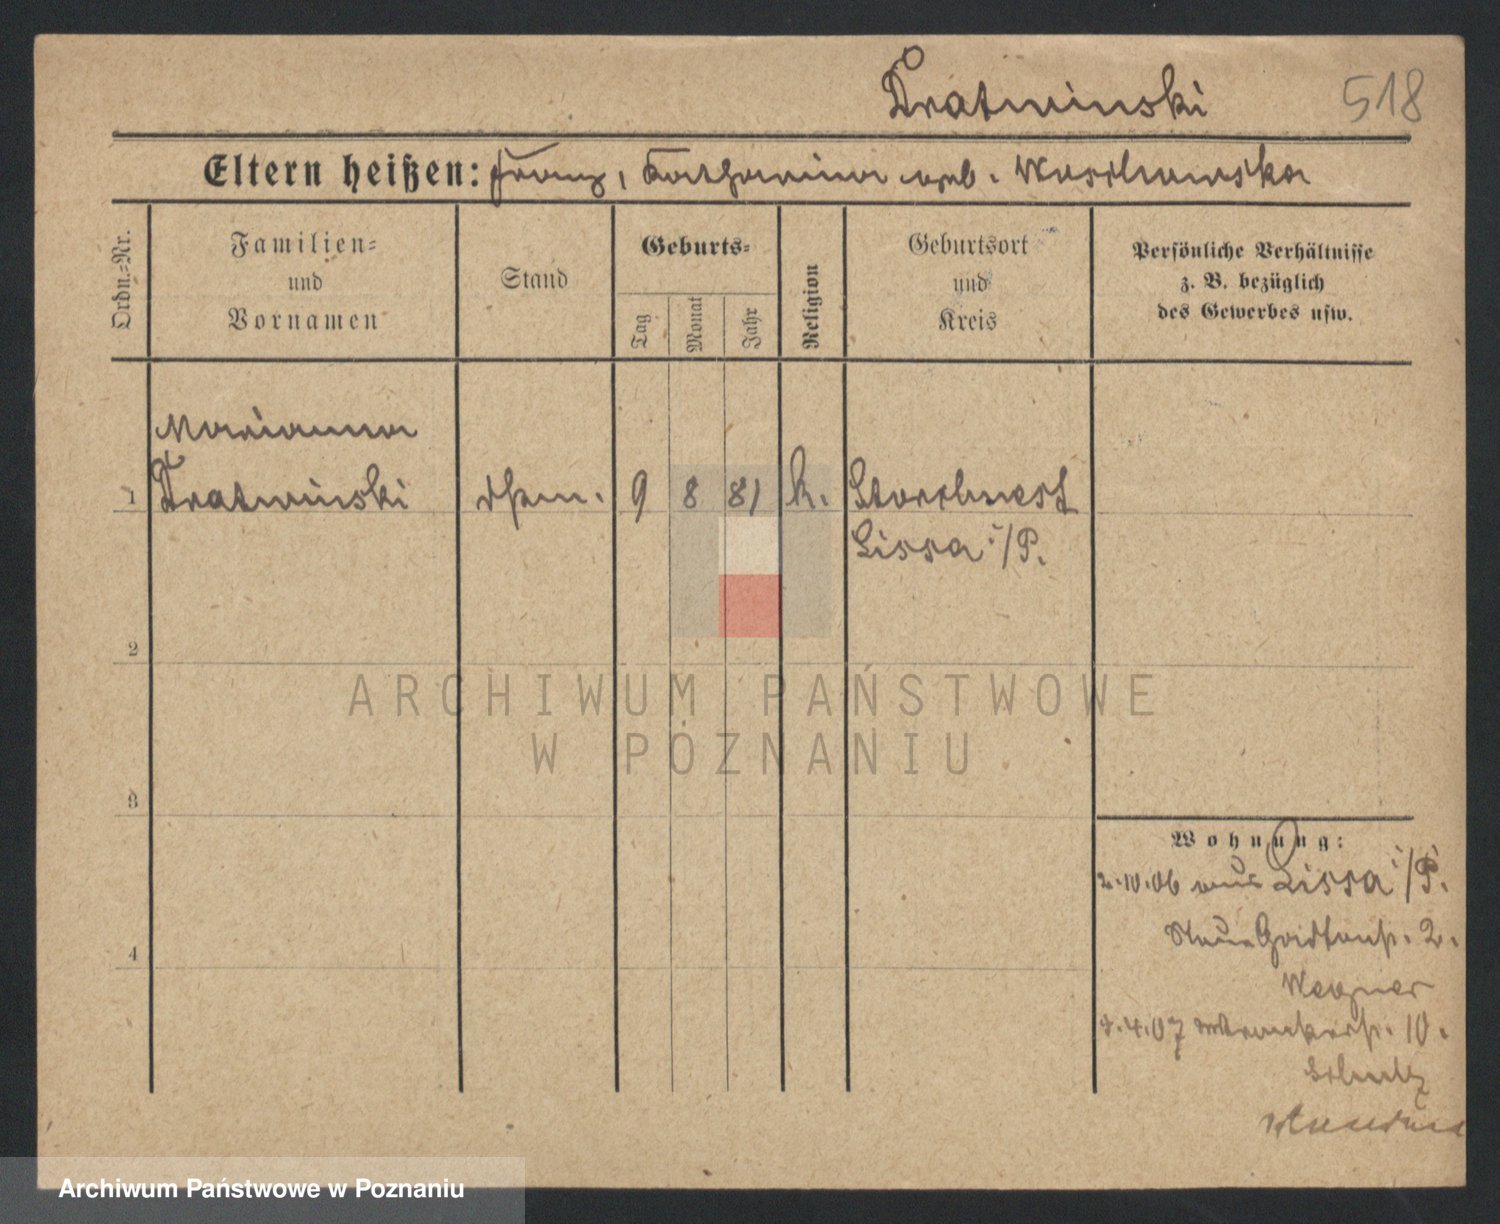 Kratwinski 518
Eltern heißen: Franz, Katharina geb. Waschewska
Ordn.=Nr.
Familien=
und
Vornamen
Stand
Geburts=
Tag
Monat
Jahr
Religion
Geburtsort
und
Kreis
Persönliche Verhältnisse
z. B. bezüglich
des Gewerbes usw.
Marianna
1 Kratwinski 9 8 81 k. Storchnest
Lissa i/P.
2
3
4
Wohnung:
2.10.06 aus Lissa i/P.
2.
Wegner
4.07 10.
Schultz
ARCHIWUM PAŃSTWOWE
W POZNANIU
Archiwum Państwowe w Poznaniu